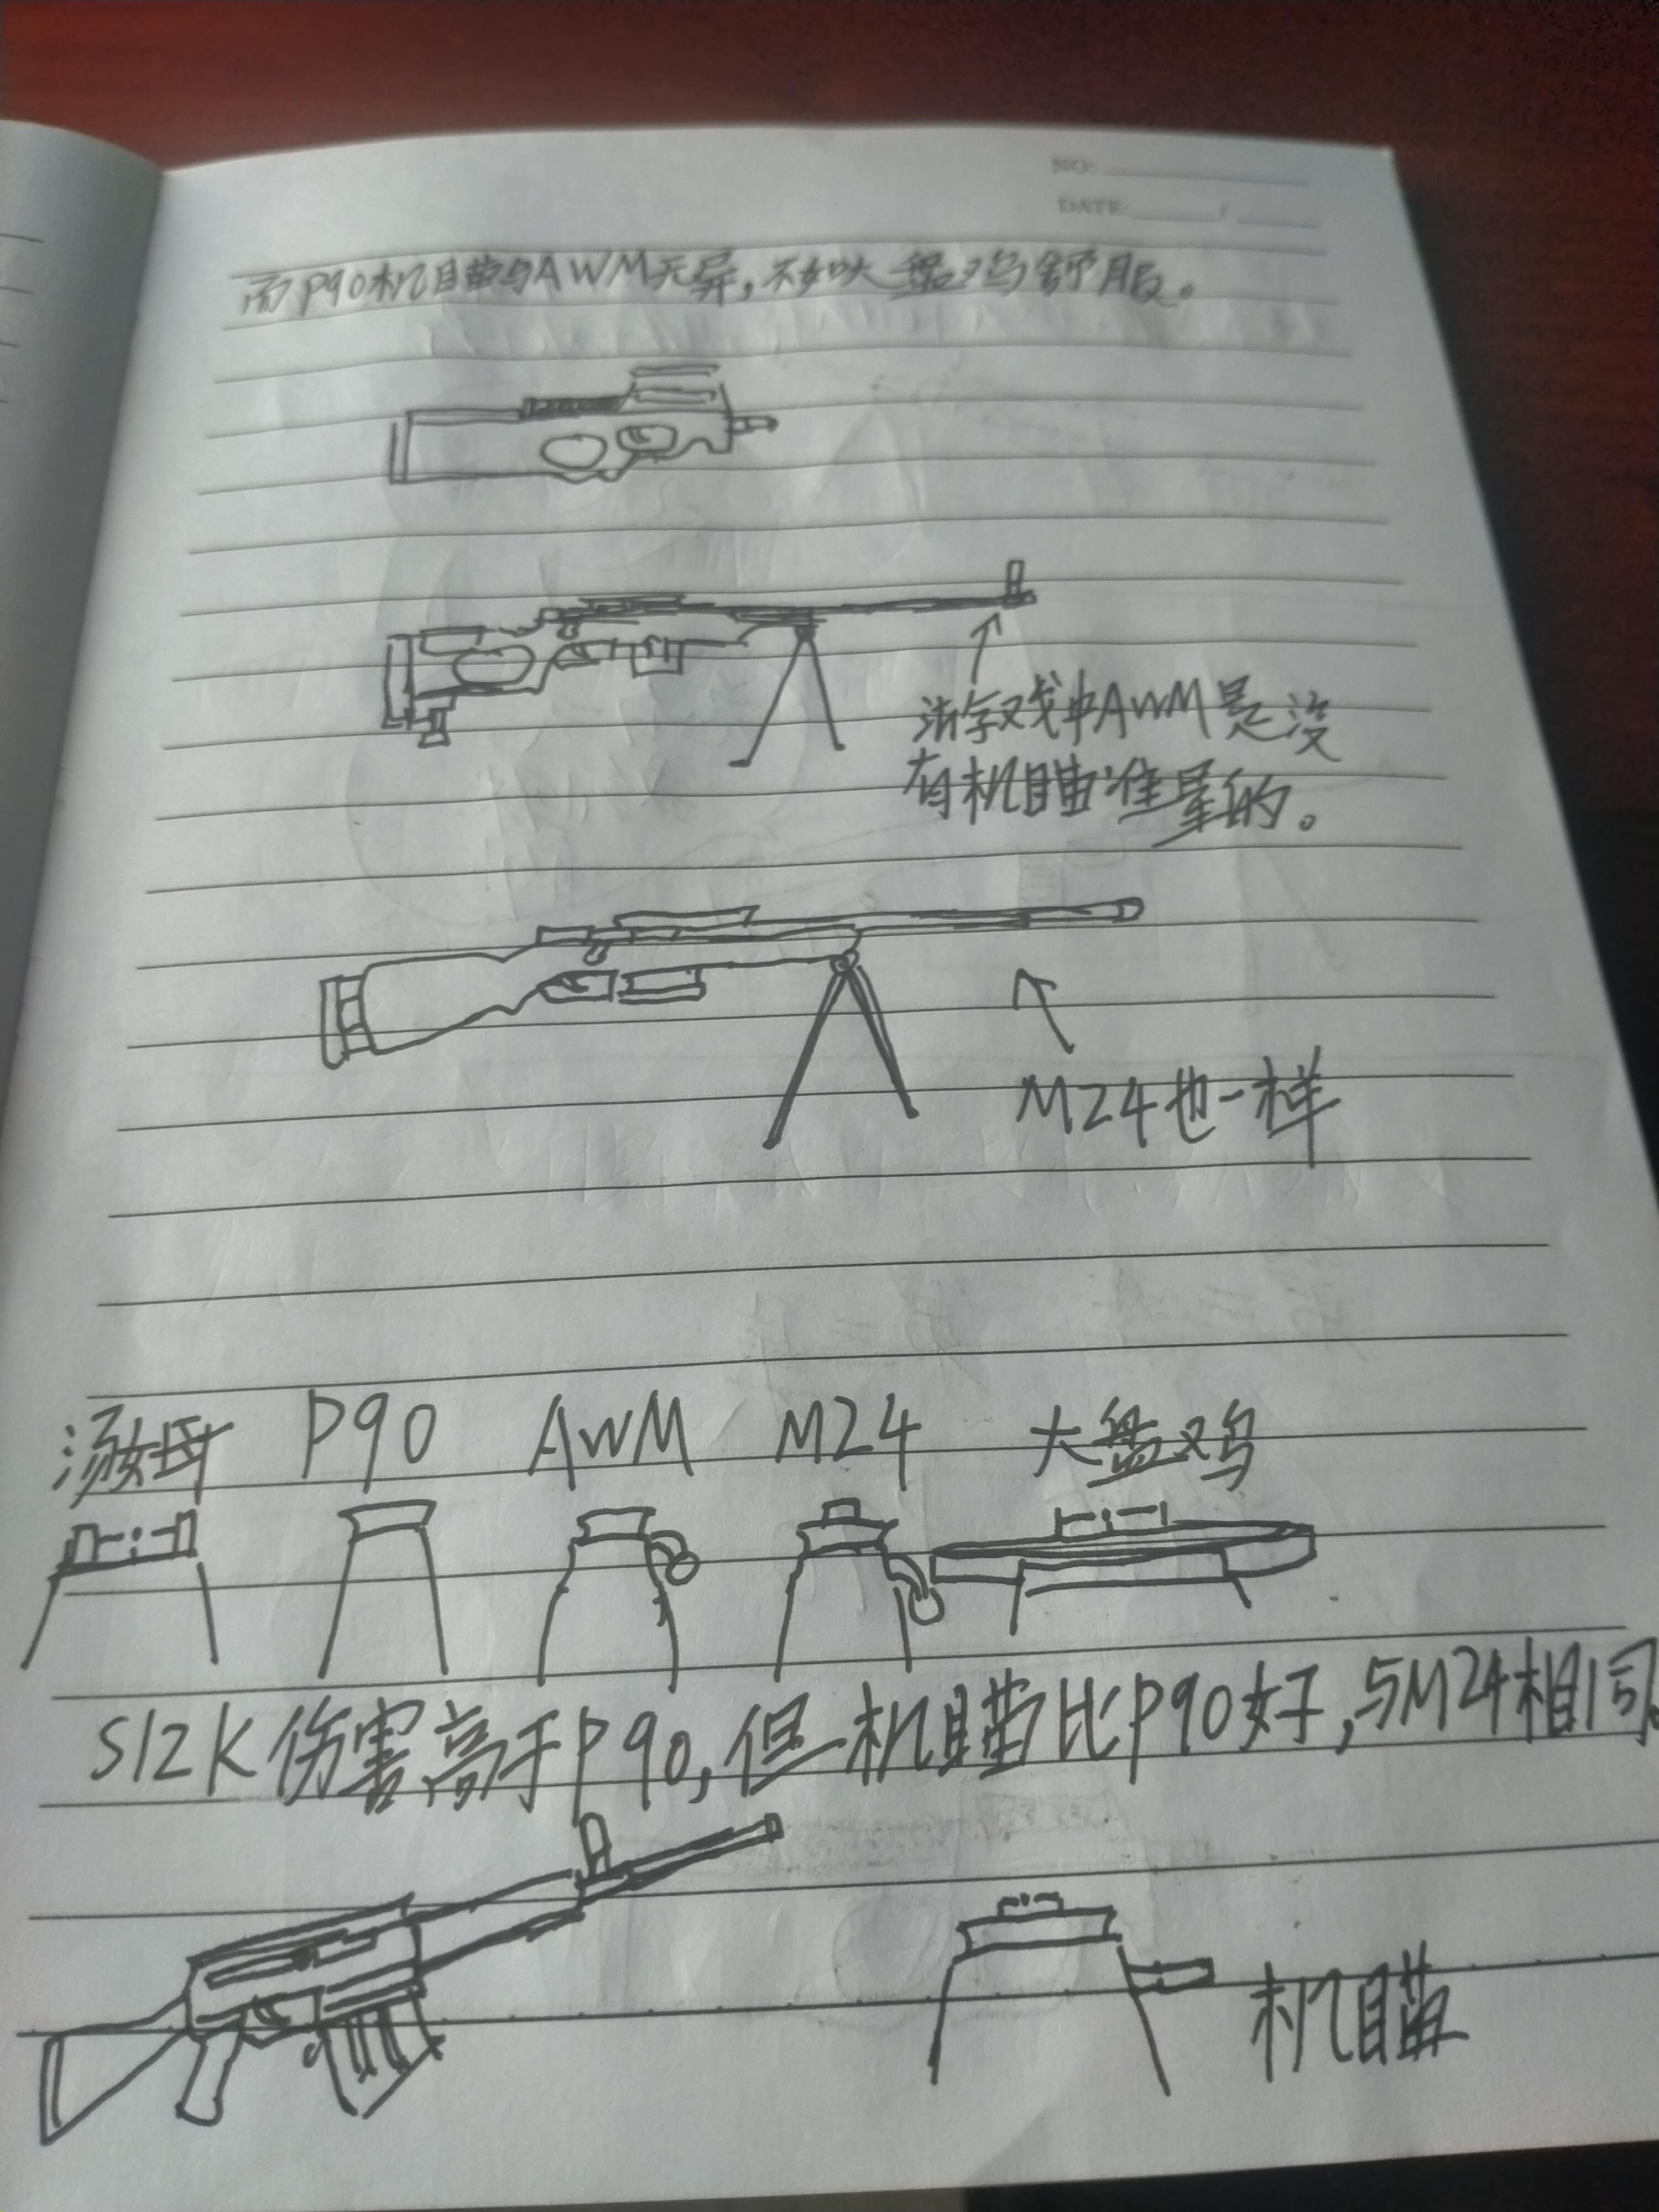 NO:
DATE: /
而P90机瞄与AWM无异,不如大盘鸡舒服。
游戏中AWM是没
有机瞄准星的。
M24也一样
汤姆 P90 AWM M24 大盘鸡
S12K伤害高于P90,但机瞄比P90好,与M24相同。
机瞄